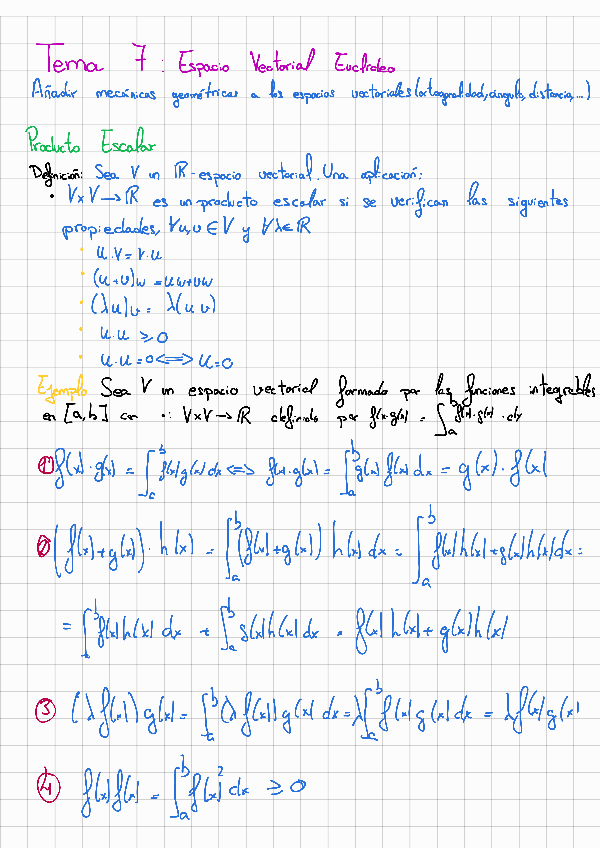 Tema 7: Espacio Vectorial Euclideo
Añadir mecánicas geométricas a los espacios vectoriales (ortogonalidad, ángulo, distancia, ...)
Producto Escalar
Definición: Sea V un ℝ-espacio vectorial. Una aplicación:
• V×V→ℝ es un producto escalar si se verifican las siguientes
propiedades, ∀u,v ∈ V y ∀λ∈ℝ
· u·v = v·u
· (u+v)w = uw+vw
· (λu)v = λ(u v)
· u·u ≥ 0
· u·u=0 ⟺ u=0
Ejemplo Sea V un espacio vectorial formado por las funciones integrables
en [a,b] con ·: V×V→ℝ definido por f(x)·g(x) = ∫_a^b f(x)·g(x)·dx
① f(x)·g(x) = ∫_a^b f(x)g(x)dx ⟺ f(x)·g(x) = ∫_a^b g(x)f(x)dx = g(x)·f(x)
② (f(x)+g(x))·h(x) = ∫_a^b (f(x)+g(x))h(x)dx = ∫_a^b f(x)h(x)+g(x)h(x)dx =
= ∫_a^b f(x)h(x)dx + ∫_a^b g(x)h(x)dx = f(x)h(x)+g(x)h(x)
③ (λf(x))g(x) = ∫_a^b (λf(x))g(x)dx = λ∫_a^b f(x)g(x)dx = λf(x)g(x)
④ f(x)f(x) = ∫_a^b f(x)² dx ≥ 0